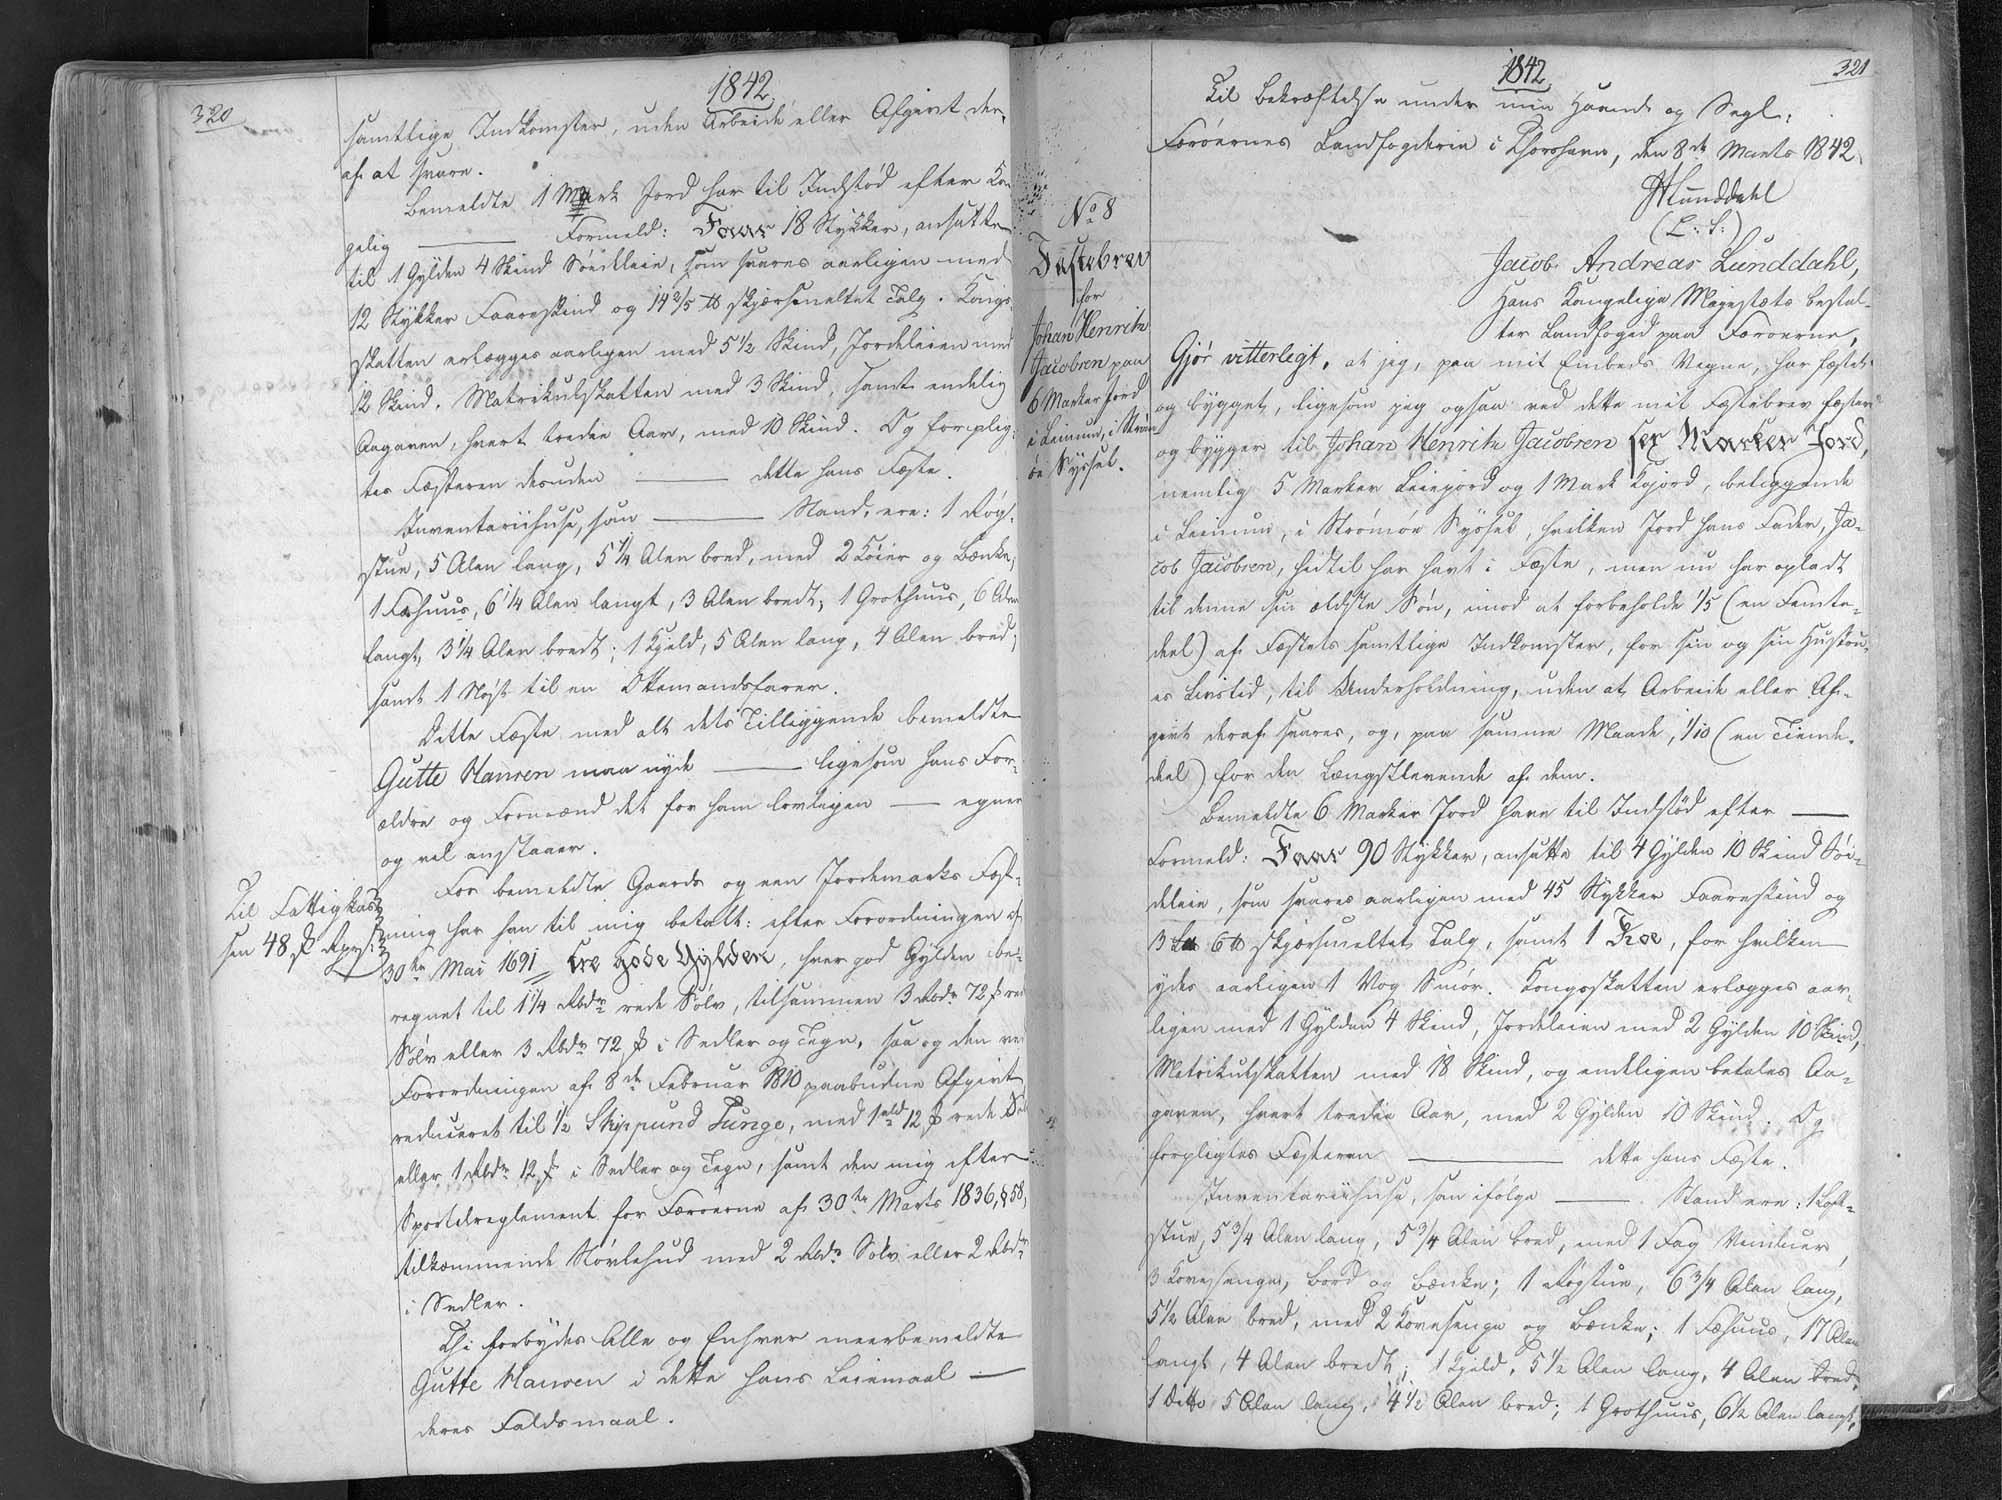 320
1842.
samtlige Indkomster, uden Arbeide eller Afgivt der-
af at svare.
Bemeldte 1 Mark Jord har til Indstød efter Kon-
gelig —— Formeld: Faar 18 Stykker, ansatte
til 1 Gylden 4 Skind Søedkleie, som svares aarligen med
12 Stykker Faareskind og 14 2/5 ℔ skjærsmeltet Talg. Kongs-
skatten erlægges aarligen med 5 1/2 Skind, Jordeleien med
12 Skind, Matrikulskatten med 3 Skind, samt endelig
Aagaven, hvert tredie Aar, med 10 Skind. Og forplig-
tes Fæsteren desuden —— dette hans Fæste.
Inventariihuse, som —— Stand, ere: 1 Røg-
stue, 5 Alen lang, 5 1/4 Alen bred, med 2 Køier og Bænke,
1 Fæhuus, 6 1/4 Alen langt, 3 Alen bredt; 1 Grothuus, 6 Alen
langt, 3 1/4 Alen bredt; 1 Kjeld, 5 Alen lang, 4 Alen bred;
samt 1 Nøst til en Ottemandsfarer.
Dette Fæste med alt dets Tilliggende bemeldte
Gutte Hansen maa nyde —— ligesom hans For-
ældre og Formænd det for ham lovligen — egner
og vel anstaaer.
Til Fattigkas-
sen 48 ß Rpgs:
For bemeldte Gaards og een Jordemarks Fæst-
ning har han til mig betalt: efter Forordningen af
30te Mai 1691 tre gode Gylden, hver god Gylden be-
regnet til 1 1/4 Rbdr rede Sølv, tilsammen 3 Rbdr 72 ß rede
Sølv eller 3 Rbdr 72 ß i Sedler og Tegn, saa og den ved
Forordningen af 8de Februar 1810 paabudne Afgivt
reduceret til 1/2 Skippund Tunge, med 1 Rbd 12 ß rede Sølv
eller 1 Rbdr 12 ß i Sedler og Tegn, samt den mig efter
Sportelreglement for Færøerne af 30te Marts 1836, § 58,
tilkommende Støvlehud med 2 Rbdr Sølv eller 2 Rbdr
i Sedler.
Thi forbydes Alle og Enhver meerbemeldte
Gutte Hansen i dette hans Leiemaal —
deres Faldsmaal.
1842
321
Til Bekræftelse under min Haand og Segl.
Færøernes Landfogderie i Thorshavn, den 8de Marts 1842
Lunddahl
(L. S.)
No 8
Fæstebrev
for
Johan Henrik
Jacobsen paa
6 Marker Jord
i Leinum, i Strøm-
øe Syssel.
Jacob Andreas Lunddahl,
Hans Kongelige Majestæts bestal-
ter Landfoged paa Færøerne,
Gjør vitterligt, at jeg, paa mit Embeds Vegne, har fæstet
og bygget, ligesom jeg ogsaa ved dette mit Fæstebrev fæster
og bygger til Johan Henrik Jacobsen sex Marker Jord,
nemlig 5 Marker Leiejord og 1 Mark Kjøjord, beliggende
i Leinum, i Strømøe Syssel, hvilken Jord hans Fader, Ja-
cob Jacobsen, hidtil har havt i Fæste, men nu har opladt
til denne sin ældste Søn, imod at forbeholde 1/5 (en Femte-
deel) af Fæstets samtlige Indkomster, for sin og sin Hustru-
es Livstid, til Underholdning, uden at Arbeide eller Af-
givt deraf svares, og, paa samme Maade, 1/10 (en Tiende-
deel) for den Længstlevende af dem.
Bemeldte 6 Marker Jord have til Indstød efter ——
Formeld: Faar 90 Stykker, ansatte til 4 Gylden 10 Skind Søe-
dleie, som svares aarligen med 45 Stykker Faareskind og
3 6 ℔ skjærsmeltet Talg, samt 1 Koe, for hvilken
ydes aarligen 1 Vog Smør. Kongsskatten erlægges aar-
ligen med 1 Gylden 4 Skind, Jordeleien med 2 Gylden 10 Skind,
Matrikulskatten med 18 Skind, og endeligen betales Aa-
gaven, hvert tredie Aar, med 2 Gylden 10 Skind. Og
forpligtes Fæsteren —— dette hans Fæste.
Inventariihuse, som ifølge —— Stand ere: 1 Loft-
stue, 5 3/4 Alen lang, 5 3/4 Alen bred, med 1 Fag Vinduer,
3 Kovesenge, Bord og Bænke; 1 Røgstue, 6 3/4 Alen lang,
5 1/2 Alen bred, med 2 Kovesenge og Bænke; 1 Fæhuus, 17 Alen
langt, 4 Alen bredt; 1 Kjeld, 5 1/2 Alen lang, 4 Alen bred,
1 Ditto 5 Alen lang, 4 1/2 Alen bred; 1 Grothuus, 6 1/2 Alen langt,